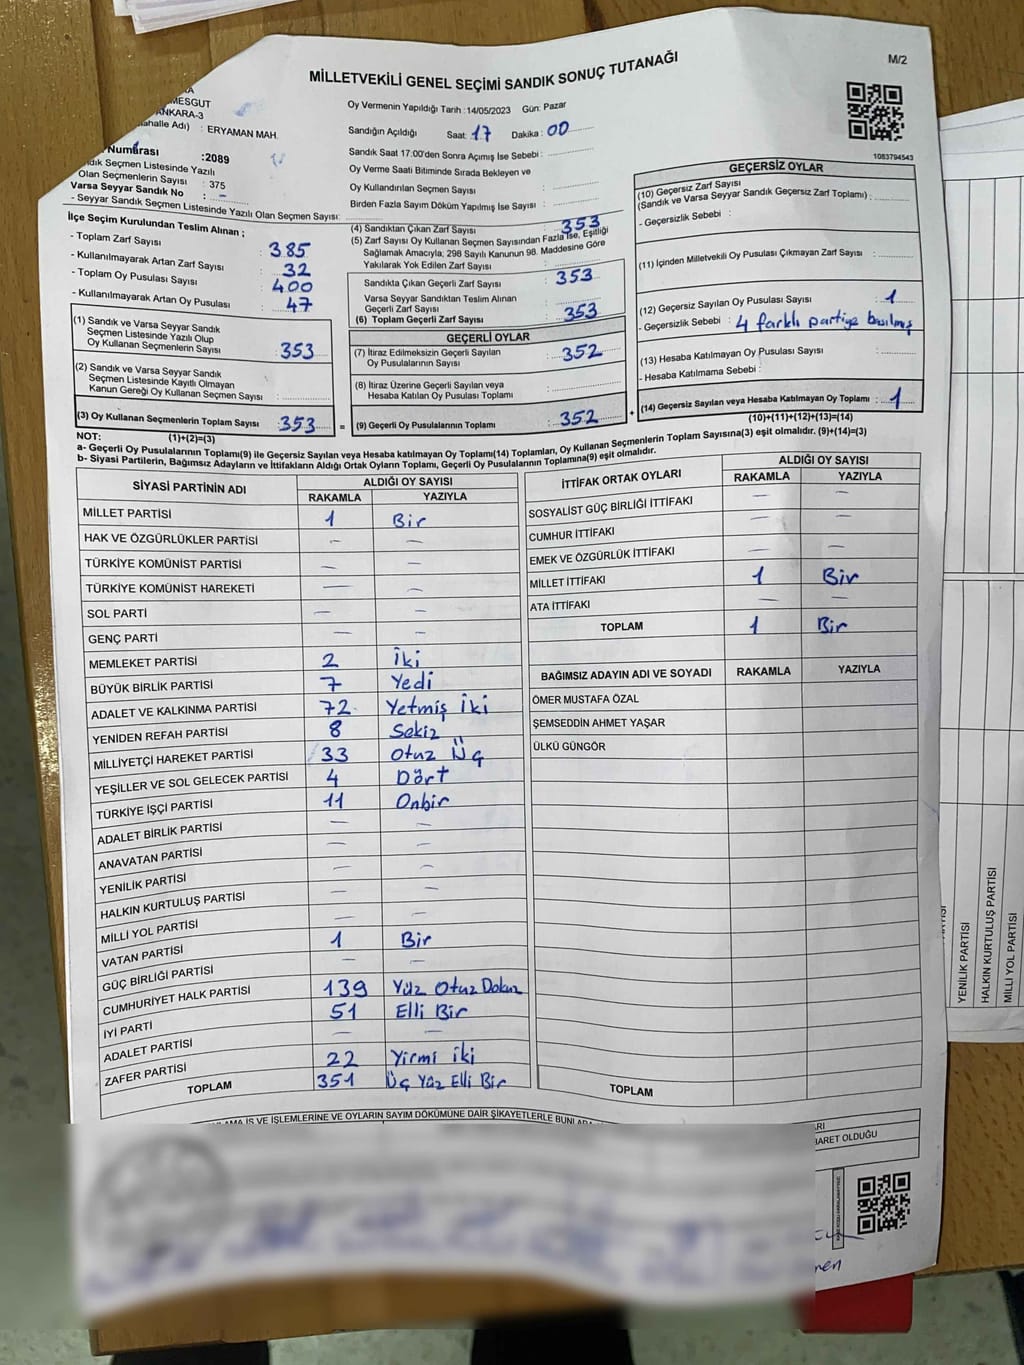 MİLLETVEKİLİ GENEL SEÇİMİ SANDIK SONUÇ TUTANAĞI
M/2
MESGUT
ANKARA-3
ahalle Adı) : ERYAMAN MAH.
Numarası :2089
Sandık Seçmen Listesinde Yazılı
Olan Seçmenlerin Sayısı : 375
Varsa Seyyar Sandık No : -
- Seyyar Sandık Seçmen Listesinde Yazılı Olan Seçmen Sayısı:
Oy Vermenin Yapıldığı Tarih :14/05/2023 Gün: Pazar
Sandığın Açıldığı Saat: 17 Dakika: 00
Sandık Saat 17:00'den Sonra Açımış İse Sebebi :
Oy Verme Saati Bitiminde Sırada Bekleyen ve
Oy Kullandırılan Seçmen Sayısı :
Birden Fazla Sayım Döküm Yapılmış İse Sayısı :
1083794543
İlçe Seçim Kurulundan Teslim Alınan ;
- Toplam Zarf Sayısı : 385
- Kullanılmayarak Artan Zarf Sayısı : 32
- Toplam Oy Pusulası Sayısı : 400
- Kullanılmayarak Artan Oy Pusulası : 47
(1) Sandık ve Varsa Seyyar Sandık
Seçmen Listesinde Yazılı Olup
Oy Kullanan Seçmenlerin Sayısı : 353
(2) Sandık ve Varsa Seyyar Sandık
Seçmen Listesinde Kayıtlı Olmayan
Kanun Gereği Oy Kullanan Seçmen Sayısı :
(3) Oy Kullanan Seçmenlerin Toplam Sayısı : 353 =
(1)+(2)=(3)
(4) Sandıktan Çıkan Zarf Sayısı : 353
(5) Zarf Sayısı Oy Kullanan Seçmen Sayısından Fazla İse, Eşitliği
Sağlamak Amacıyla; 298 Sayılı Kanunun 98. Maddesine Göre
Yakılarak Yok Edilen Zarf Sayısı :
Sandıkta Çıkan Geçerli Zarf Sayısı : 353
Varsa Seyyar Sandıktan Teslim Alınan
Geçerli Zarf Sayısı :
(6) Toplam Geçerli Zarf Sayısı : 353
GEÇERLİ OYLAR
(7) İtiraz Edilmeksizin Geçerli Sayılan
Oy Pusulalarının Sayısı : 352
(8) İtiraz Üzerine Geçerli Sayılan veya
Hesaba Katılan Oy Pusulası Toplamı :
(9) Geçerli Oy Pusulalarının Toplamı : 352 +
GEÇERSİZ OYLAR
(10) Geçersiz Zarf Sayısı
(Sandık ve Varsa Seyyar Sandık Geçersiz Zarf Toplamı) :
- Geçersizlik Sebebi :
(11) İçinden Milletvekili Oy Pusulası Çıkmayan Zarf Sayısı :
(12) Geçersiz Sayılan Oy Pusulası Sayısı : 1
- Geçersizlik Sebebi : 4 farklı partiye basılmış
(13) Hesaba Katılmayan Oy Pusulası Sayısı :
- Hesaba Katılmama Sebebi :
(14) Geçersiz Sayılan veya Hesaba Katılmayan Oy Toplamı : 1
(10)+(11)+(12)+(13)=(14)
NOT:
a- Geçerli Oy Pusulasının Toplamı(9) ile Geçersiz Sayılan veya Hesaba Katılmayan Oy Toplamı(14) Toplamları, Oy Kullanan Seçmenlerin Toplam Sayısına(3) eşit olmalıdır. (9)+(14)=(3)
b- Siyasi Partilerin, Bağımsız Adayların ve İttifakların Aldığı Ortak Oyların Toplamı, Geçerli Oy Pusulalarının Toplamına(9) eşit olmalıdır.
SİYASİ PARTİNİN ADI ALDIĞI OY SAYISI
RAKAMLA YAZIYLA
MİLLET PARTİSİ 1 Bir
HAK VE ÖZGÜRLÜKLER PARTİSİ - -
TÜRKİYE KOMÜNİST PARTİSİ - -
TÜRKİYE KOMÜNİST HAREKETİ - -
SOL PARTİ - -
GENÇ PARTİ - -
MEMLEKET PARTİSİ 2 İki
BÜYÜK BİRLİK PARTİSİ 7 Yedi
ADALET VE KALKINMA PARTİSİ 72 Yetmiş iki
YENİDEN REFAH PARTİSİ 8 Sekiz
MİLLİYETÇİ HAREKET PARTİSİ 33 Otuz Üç
YEŞİLLER VE SOL GELECEK PARTİSİ 4 Dört
TÜRKİYE İŞÇİ PARTİSİ 11 Onbir
ADALET BİRLİK PARTİSİ - -
ANAVATAN PARTİSİ - -
YENİLİK PARTİSİ - -
HALKIN KURTULUŞ PARTİSİ - -
MİLLİ YOL PARTİSİ - -
VATAN PARTİSİ 1 Bir
GÜÇ BİRLİĞİ PARTİSİ - -
CUMHURİYET HALK PARTİSİ 139 Yüz Otuz Dokuz
İYİ PARTİ 51 Elli Bir
ADALET PARTİSİ - -
ZAFER PARTİSİ 22 Yirmi iki
TOPLAM 351 Üç Yüz Elli Bir
İTTİFAK ORTAK OYLARI ALDIĞI OY SAYISI
RAKAMLA YAZIYLA
SOSYALİST GÜÇ BİRLİĞİ İTTİFAKI - -
CUMHUR İTTİFAKI - -
EMEK VE ÖZGÜRLÜK İTTİFAKI - -
MİLLET İTTİFAKI 1 Bir
ATA İTTİFAKI - -
TOPLAM 1 Bir
BAĞIMSIZ ADAYIN ADI VE SOYADI RAKAMLA YAZIYLA
ÖMER MUSTAFA ÖZAL
ŞEMSEDDİN AHMET YAŞAR
ÜLKÜ GÜNGÖR
TOPLAM
İŞ VE İŞLEMLERİNE VE OYLARIN SAYIM DÖKÜMÜNE DAİR ŞİKAYETLERLE
ARI
BARET OLDUĞU
YENİLİK PARTİSİ
HALKIN KURTULUŞ PARTİSİ
MİLLİ YOL PARTİSİ